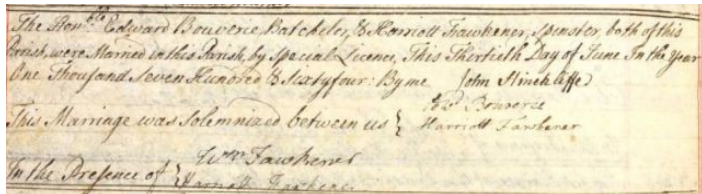 The Hon.ble Edward Bouverie, Batchelor, & Harriott Fawkener, Spinster, both of this
Parish, were Married in this Parish, by Special Licence, This Thirtieth Day of June In the Year
One Thousand Seven Hundred & Sixtyfour: By me John Hinchliffe
This Marriage was Solemnized between us { Edwd. Bouverie
Harriott Fawkener
In the Presence of { Wm. Fawkener
Harriott Fawkener